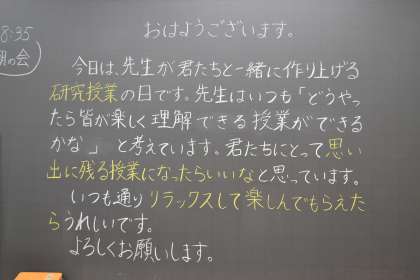 8:35
朝の会
おはようございます。
今日は、先生が君たちと一緒に作り上げる
研究授業の日です。先生はいつも「どうやっ
たら皆が楽しく理解できる授業ができる
かな」と考えています。君たちにとって思い
出に残る授業になったらいいなと思っています。
いつも通りリラックスして楽しんでもらえた
らうれしいです。
よろしくお願いします。